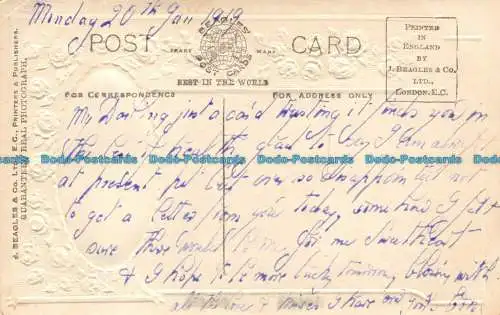 Monday 20th Jan 1919
POST CARD
TRADE MARK
BEAGLES'
POST CARDS
BEST IN THE WORLD
PRINTED
IN
ENGLAND
BY
J. BEAGLES & Co.
LTD.,
LONDON.E.C.
FOR CORRESPONDENCE
FOR ADDRESS ONLY
J. BEAGLES & Co., LTD., LONDON, E.C., PRINTERS & PUBLISHERS.
GUARANTEED REAL PHOTOGRAPH.
My Darling just a card trusting it finds you in
the best health glad to say I am alright
at present but ever so disappointed not
to get a letter from you today, somehow I felt
sure there would be one for me Sweetheart
& I hope to be more lucky tomorrow, closing with
all the love & kisses I have
Dodo-Postcards Dodo-Postcards Dodo-Postcards Dodo-Postcards